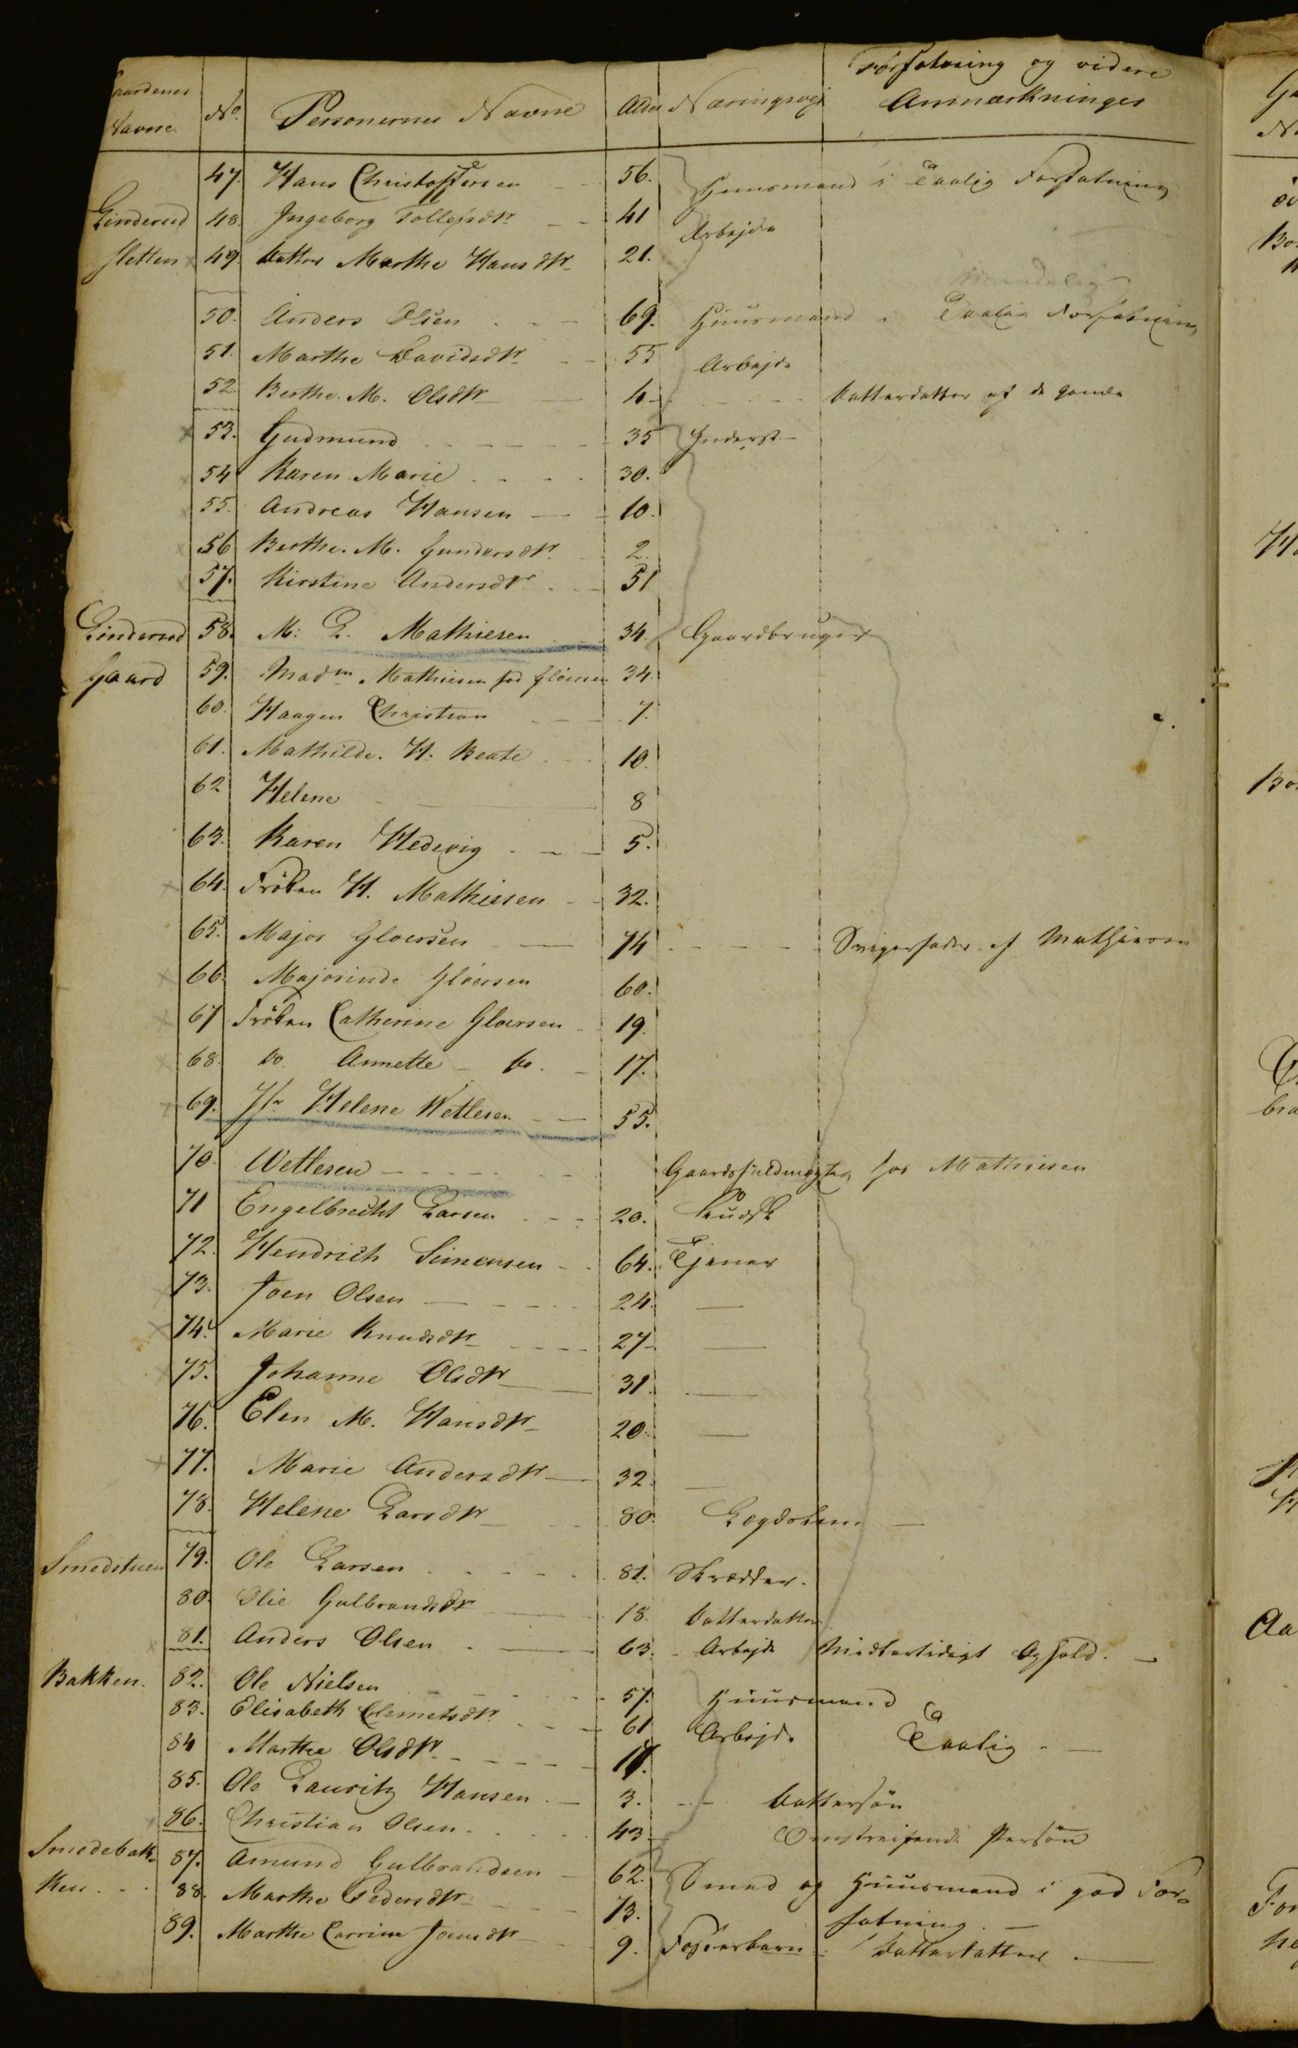 Gaardenes Navne No. Personernes Navne Alder Næringsvej Forfatning og videre Anmærkninger
47. Hans Christoffersen 56. Huusmand i Taalig Forfatning
Linderud 48. Ingeborg Tollefsdtr 41 Arbejde
sletten 49 Datter Marthe Hansdtr 21.
50. Anders Olsen 69. Huusmand i Taalig Forfatning
51. Marthe Davidsdtr 55 Arbejde
52. Berthe M. Olsdtr 4 Datterdatter af de gamle
53. Gudmund 35 Inderst
54 Karen Marie 30.
55. Andreas Hansen 10.
56 Berthe M. Gundersdtr 2.
57. Kirstine Andersdtr 51
Linderud 58. M: L. Mathiesen 34. Gaardbruger
Gaard 59. Madm Mathiesen fød Gløersen 34.
60. Haagen Christian 7.
61. Mathilde. H. Beate 10.
62 Helene 8
63. Karen Hedevig 5.
64. Frøken H. Mathiesen 32.
65. Major Gloersen 74 Svigerfader af Mathiesen
66. Majorinde Gløersen 60.
67 Frøken Catherine Gloersen 19.
68. do. Annette do. 17.
69. Jfr Helene Wetlesen 55.
70. Wetlesen Gaardsfuldmægtig hos Mathiesen
71 Engelbrecht Larsen 20. Kudsk
72. Hendrich Simensen 64. Tjener
73. Joen Olsen 24. —
74. Marie Knudsdtr 27 —
75. Johanne Olsdtr 31. —
76. Elen M. Hansdtr 20. —
77. Marie Andersdtr 32. —
78. Helene Larsdtr 80. Lægdslem
Smedstuen 79. Ole Larsen 81. Skrædder.
80. Olie Gulbrandsdtr 18. Datterdatter
81. Anders Olsen 63. Arbejde Midlertidigt Ophold.
Bakken. 82. Ole Nielsen 57. Huusmand
83. Elisabeth Clemetsdtr 61 Arbejde Taalig.
84 Marthe Olsdtr 17.
85. Ole Lauritz Hansen 3. Dattersøn
86. Christian Olsen 43 Omstreifende Person
Smedebak- 87. Amund Gulbrandsen 62. Smed og Huusmand i god For-
ken 88. Marthe Pedersdtr 73. fatning.
89. Marthe Carrine Joensdtr 9. Fosterbarn Datterdatter